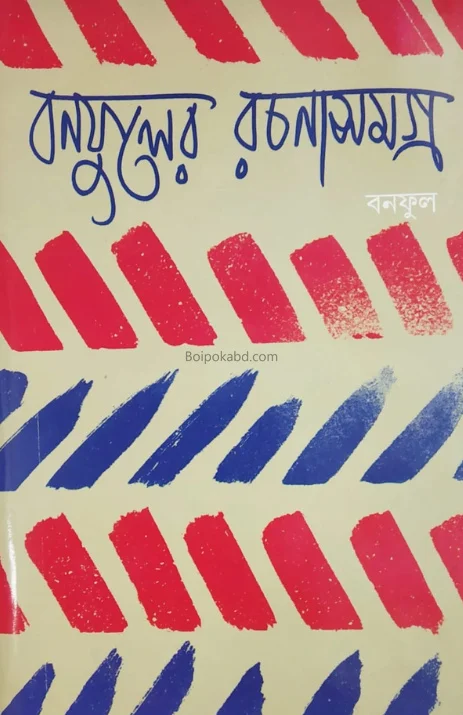 বনফুলের রচনাসমগ্র
বনফুল
Boipokabd.com